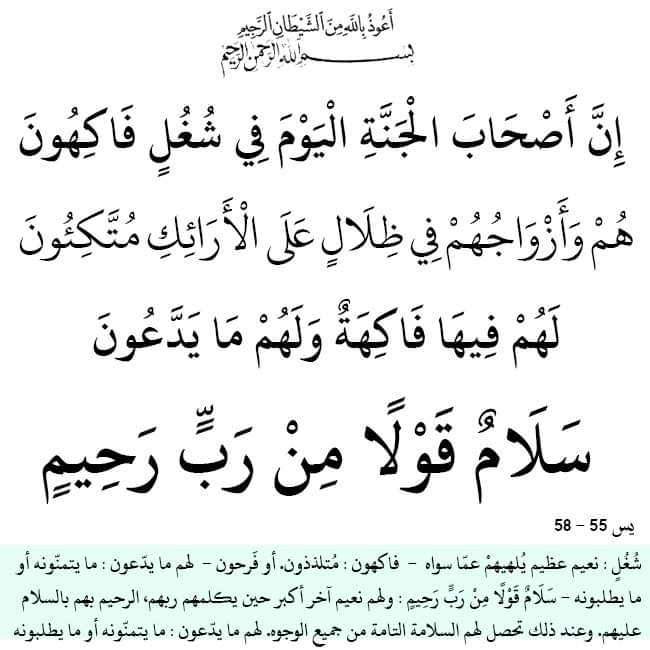 أَعُوذُ بِاللَّهِ مِنَ الشَّيْطَانِ الرَّجِيمِ
بِسْمِ اللَّهِ الرَّحْمَنِ الرَّحِيمِ
إِنَّ أَصْحَابَ الْجَنَّةِ الْيَوْمَ فِي شُغُلٍ فَاكِهُونَ
هُمْ وَأَزْوَاجُهُمْ فِي ظِلَالٍ عَلَى الْأَرَائِكِ مُتَّكِئُونَ
لَهُمْ فِيهَا فَاكِهَةٌ وَلَهُمْ مَا يَدَّعُونَ
سَلَامٌ قَوْلًا مِنْ رَبٍّ رَحِيمٍ
يس 55 - 58
شُغُلٍ : نعيم عظيم يُلهيهمْ عمّا سواه - فاكهون : مُتلذذون. أو فَرحون - لهم ما يدّعون : ما يتمنّونه أو
ما يطلبونه - سَلَامٌ قَوْلًا مِنْ رَبٍّ رَحِيمٍ : ولهم نعيم آخر أكبر حين يكلمهم ربهم، الرحيم بهم بالسلام
عليهم. وعند ذلك تحصل لهم السلامة التامة من جميع الوجوه. لهم ما يدّعون : ما يتمنّونه أو ما يطلبونه